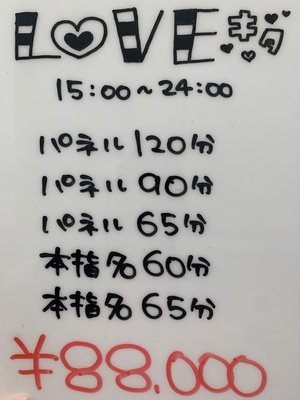 LOVE
15:00~24:00
パネル 120分
パネル 90分
パネル 65分
本指名 60分
本指名 65分
¥88.000